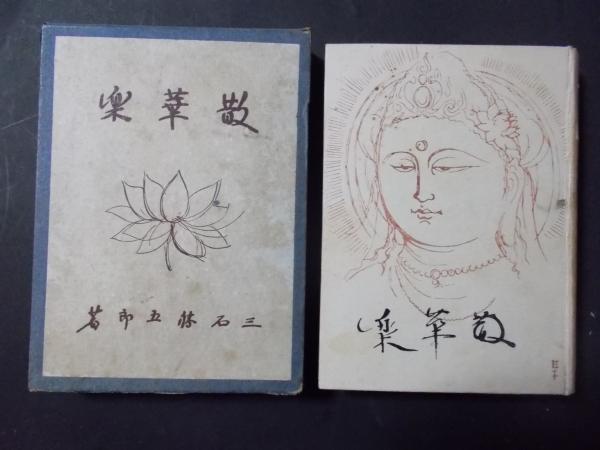 散華楽
三石勝五郎著
散華楽